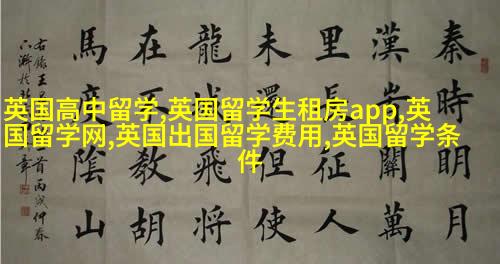 秦時眀月
漢時關萬
里長征人
未還但使
龍城飛將
在不教胡
馬度陰山
英国高中留学,英国留学生租房app,英
国留学网,英国出国留学费用,英国留学条
件